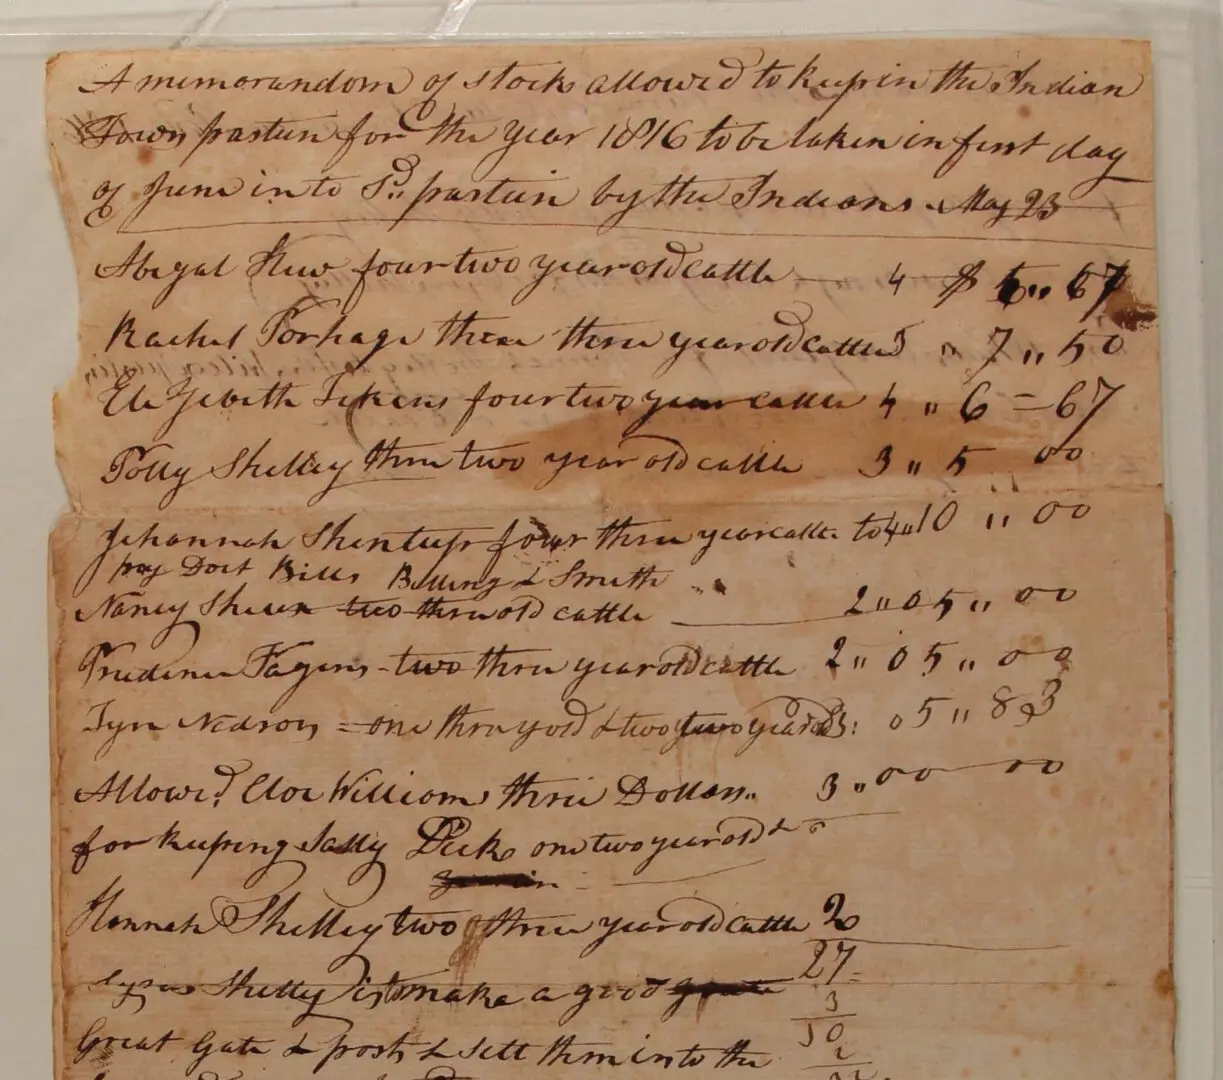 A memorandom of stocks allowed to keep in the Indian
Town pasturn for the year 1816 to be taken in first day
of June in to Sd. pasturn by the Indians. May 23
Abegal Huw four two year old cattle 4 $ 6,,67
Rachel Porhage three three year old cattle 3 " 7,,50
Elezebeth Fekens four two year cattle 4 " 6=67
Polly Shelley three two year old cattle 3 " 5 00
Jehannah Shentup four three year cattle to 4"10 " 00
pay Doct Bills Billing & Smith
Nancy Sheux two three old cattle 2"05" 00
Prudence Fagens - two three year old cattle 2" 05" 00
Tyre Nedson = one three y old & two two year old 3: 05" 83
Allowd. Cloe Williams three Dollars.. 3 "00 00
for keeping Sally Peeks one two year old
Hannah Shelley two three year old cattle 2
27
Shelley is to make a good
3
Great Gate & posts & sett them in to the 30
2